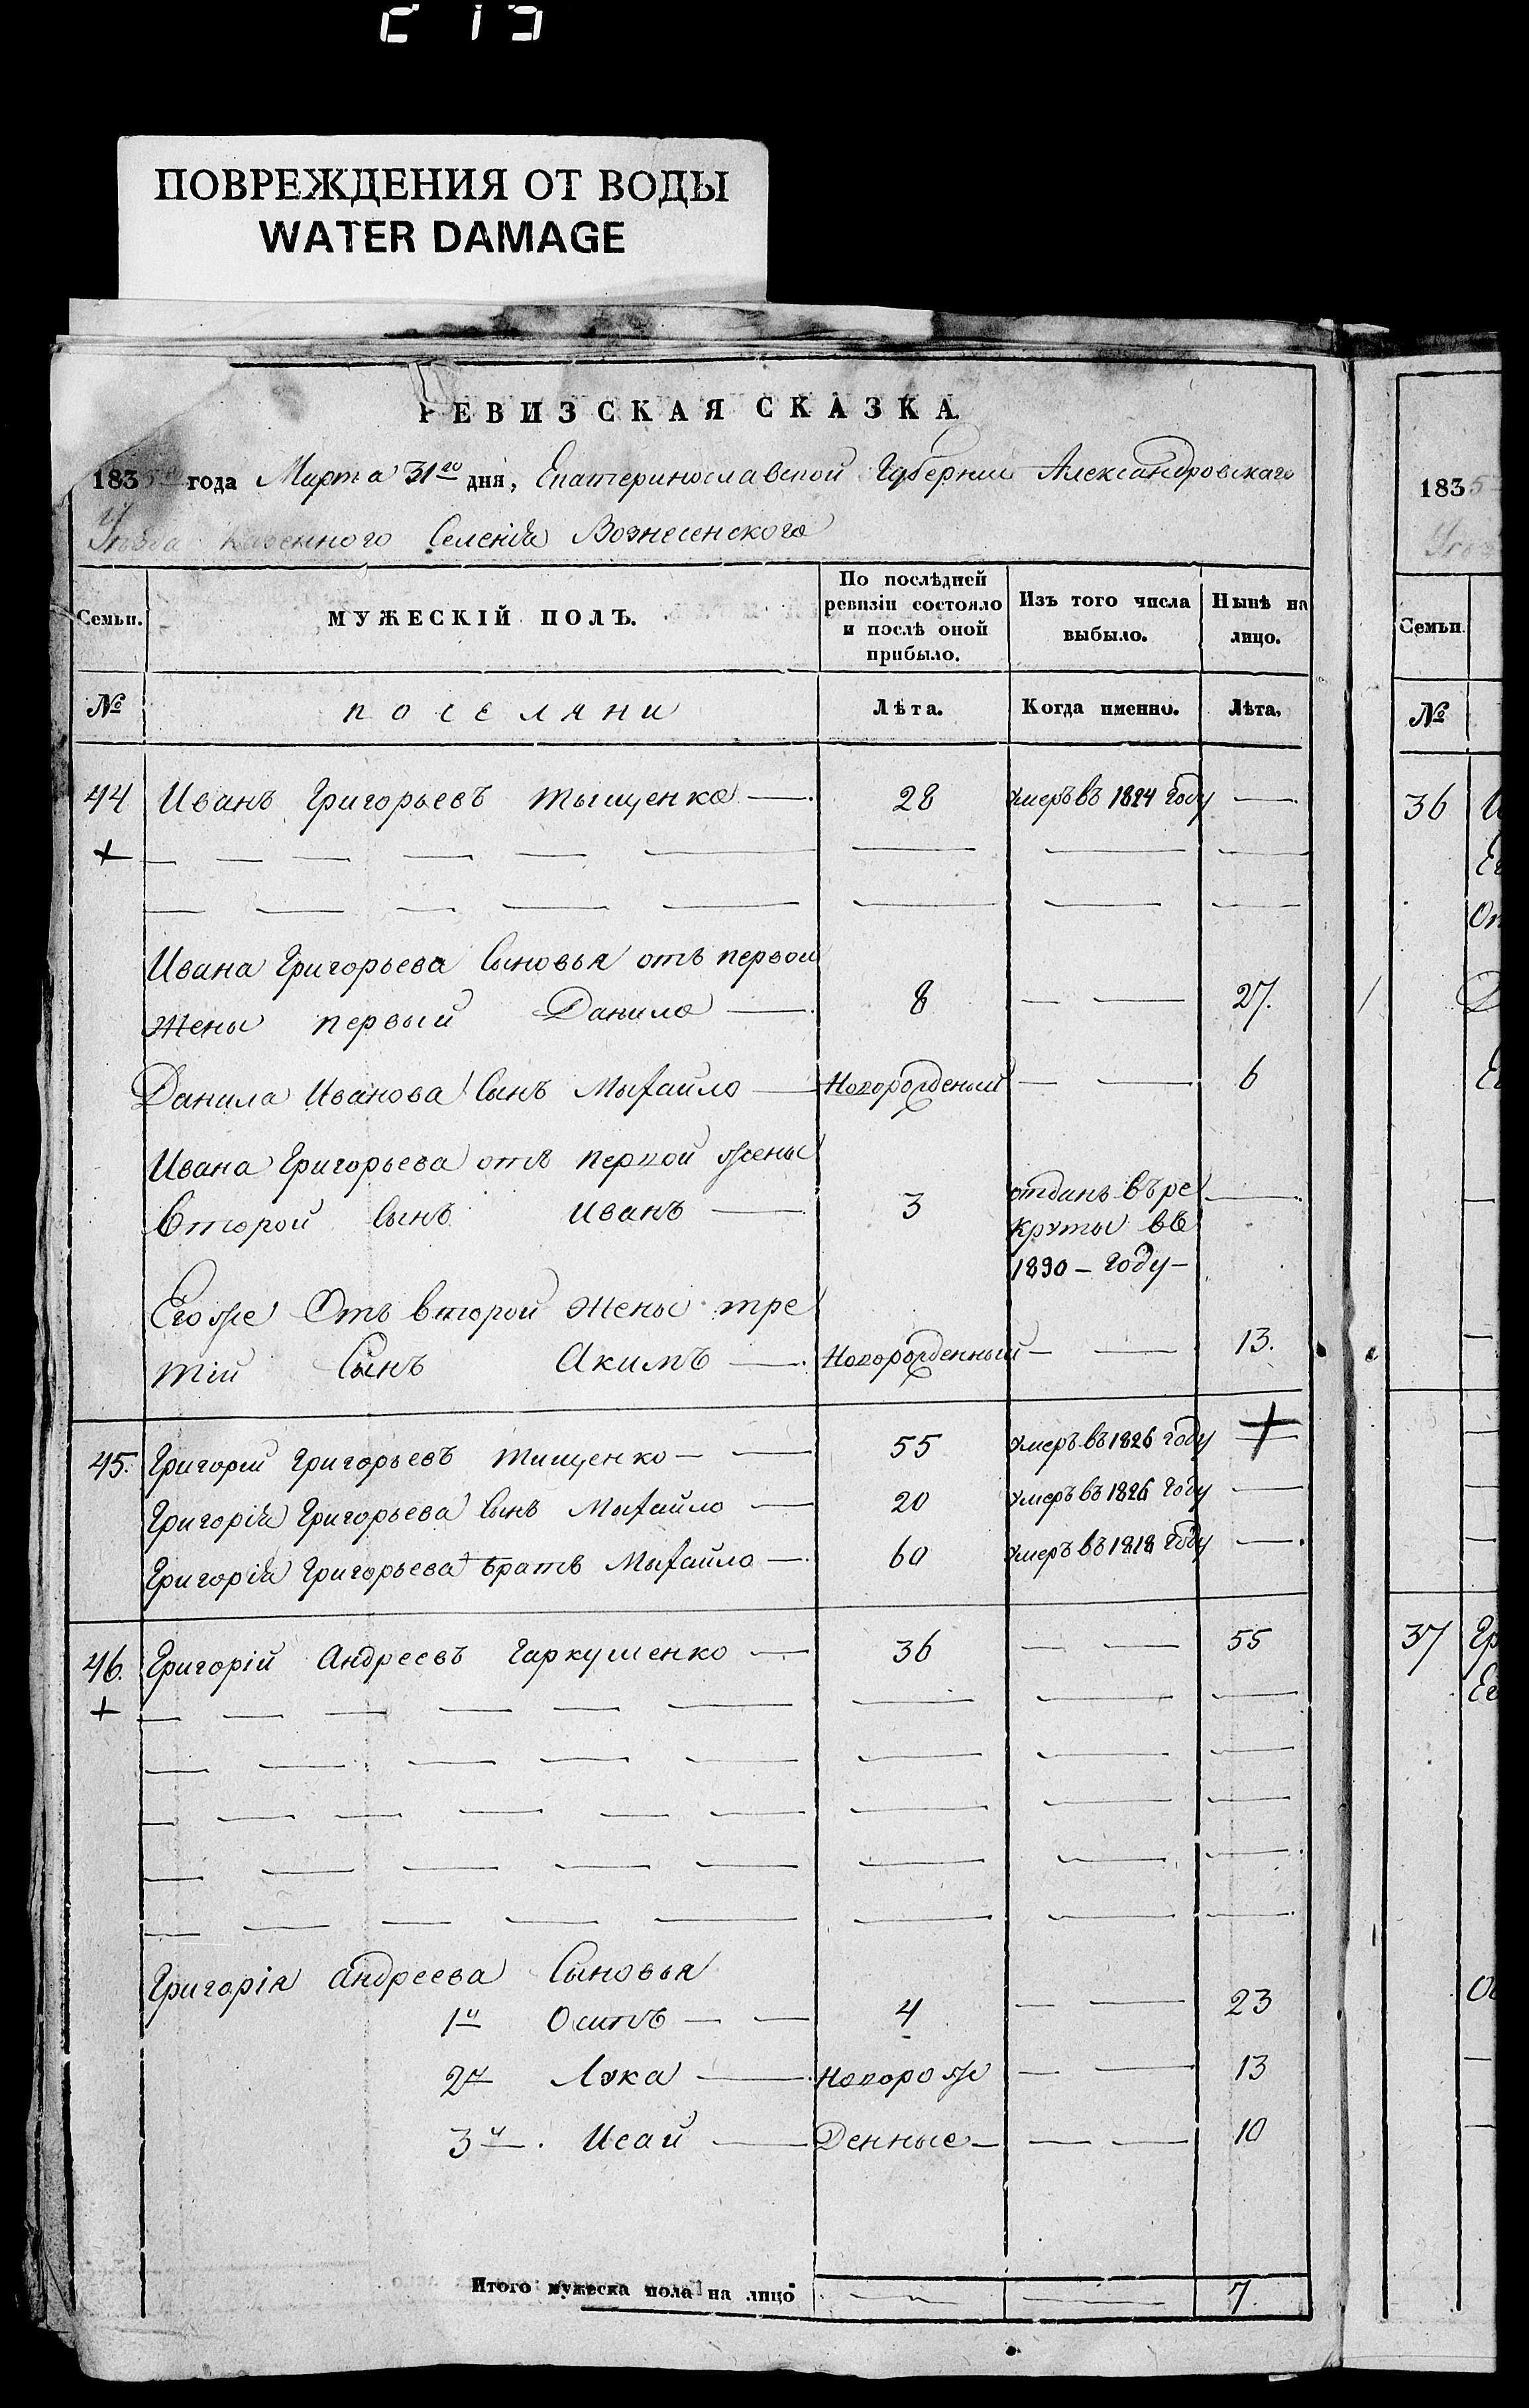 ПОВРЕЖДЕНИЯ ОТ ВОДЫ
WATER DAMAGE
РЕВИЗСКАЯ СКАЗКА.
1835 года Марта 31го дня, Екатеринославской Губернии Александровскаго
Уезда Казенного Селенія Вознесенского
Семьи. МУЖЕСКІЙ ПОЛЪ. По послѣдней ревизіи состояло и послѣ оной прибыло. Изъ того числа выбыло. Нынѣ на лицо.
№ поселяни Лѣта. Когда именно. Лѣта.
44 Иванъ Григорьевъ Тыщенко — 28 умеръ въ 1824 году —
+
Ивана Григорьева Сыновья отъ первой
жены первый Данило — 8 — — 27.
Данила Иванова Сынъ Мыхайло — Новорожденый — — 6
Ивана Григорьева отъ первой жены
второй Сынъ Иванъ — 3 отданъ въ ре —
круты въ
1830 – году –
Егоже Отъ второй жены тре
тій Сынъ Акимъ — Новорожденный — — 13.
45. Григорій Григорьевъ Тищенко — — 55 умеръ въ 1826 году +
Григорія Григорьева Сынъ Мыхайло — 20 умеръ въ 1826 году —
Григорія Григорьева братъ Мыхайло — 60 умеръ въ 1818 году —
46. Григорій Андреевъ Гаркушенко — 36 — — 55
+
Григорія Андреева Сыновья
1й Осипъ — — 4 — — 23
2й Лука — Новорож — — 13
3й. Исай — Денные — — — 10
Итого мужеска пола на лицо 7.
1835
Семьи.
№
36
37